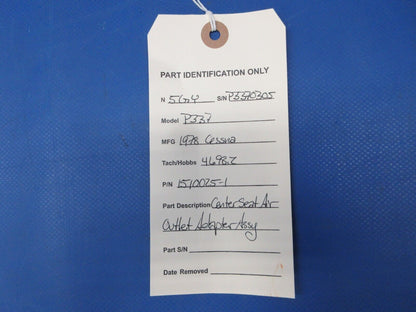 PART IDENTIFICATION ONLY
N 5GY S/N P3370305
Model P337
MFG 1978 Cessna
Tach/Hobbs 4698.2
P/N 1510025-1
Part Description Center Seat Air
Outlet Adapter Assy
Part S/N
Date Removed